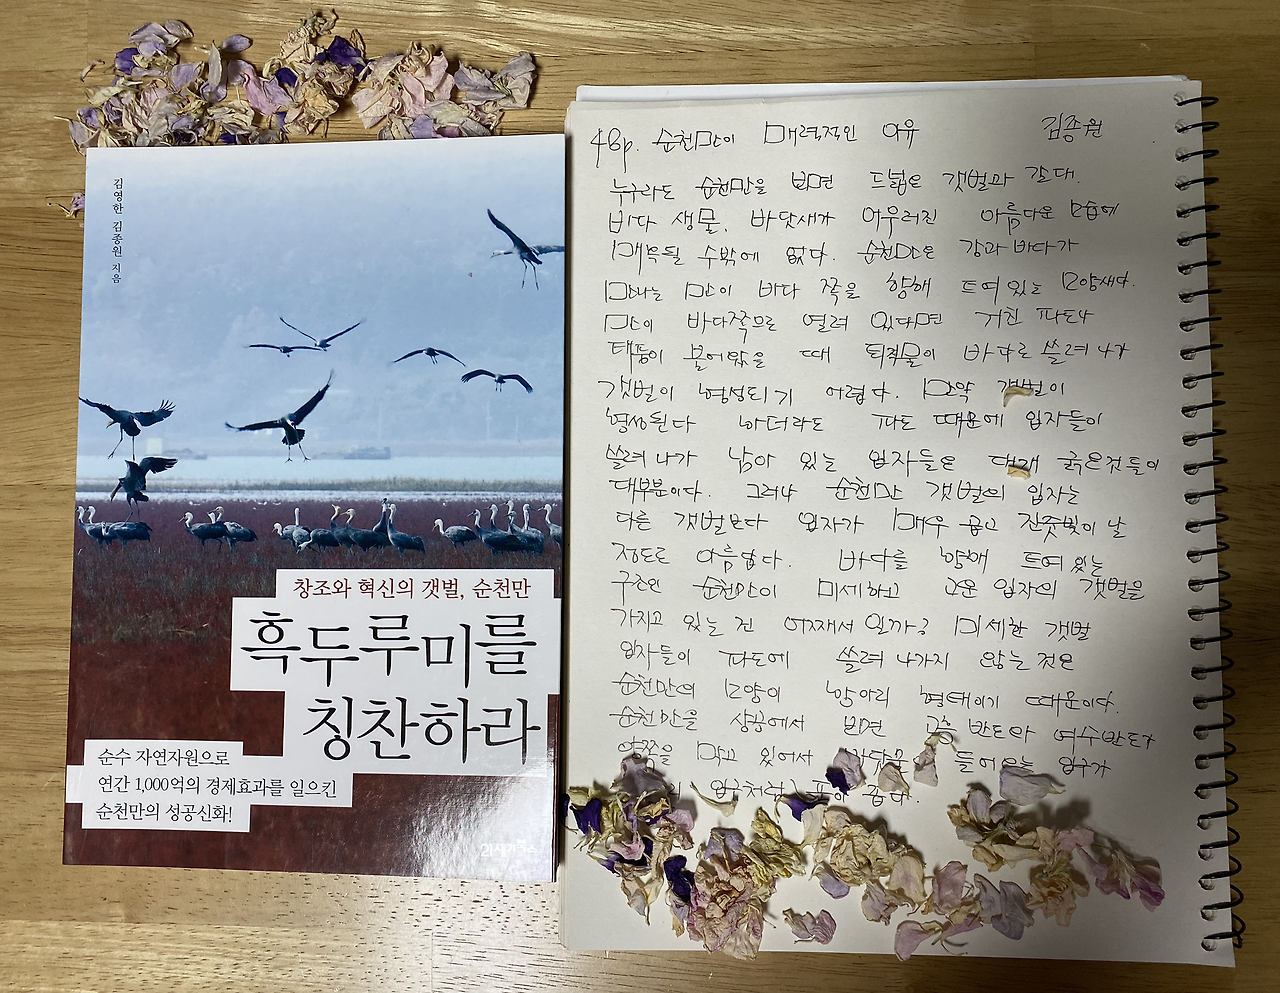 김영한 김종원 지음
창조와 혁신의 갯벌, 순천만
흑두루미를
칭찬하라
순수 자연자원으로
연간 1,000억의 경제효과를 일으킨
순천만의 성공신화!
21세기북스
48p. 순천만이 매력적인 이유 김종원
누구라도 순천만을 보면 드넓은 갯벌과 갈대.
바다 생물, 바닷새가 어우러진 아름다운 모습에
매혹될 수밖에 없다. 순천만은 강과 바다가
만나는 만이 바다 쪽을 향해 트여있는 모양새다.
만이 바다쪽으로 열려 있다면 거친 파도나
태풍이 불어왔을 때 퇴적물이 바다로 쓸려 나가
갯벌이 형성되기 어렵다. 만약 갯벌이
형성된다 하더라도 파도 때문에 입자들이
쓸려 나가 남아 있는 입자들은 대개 굵은것들이
대부분이다. 그러나 순천만 갯벌의 입자는
다른 갯벌보다 입자가 매우 곱고 잔줏빛이 날
정도로 아름답다. 바다를 향해 트여 있는
구조인 순천만이 미세하고 고운 입자의 갯벌을
가지고 있는 건 어째서 일까? 미세한 갯벌
입자들이 파도에 쓸려 나가지 않는 것은
순천만의 모양이 항아리 형태이기 때문이다.
순천만을 상공에서 보면 고흥 반도와 여수반도가
양쪽을 막고 있어서 바닷물 들어오는 입구가
입구처럼 좁다.